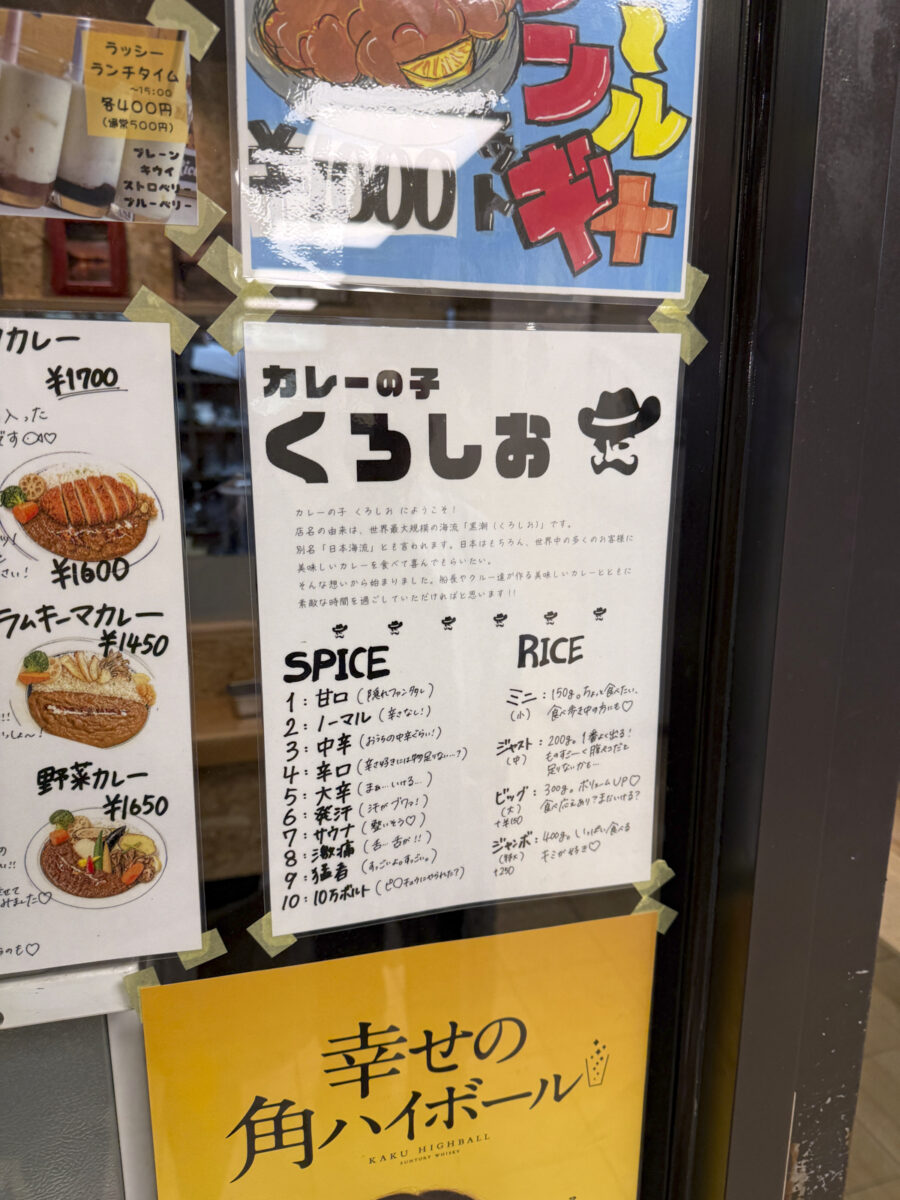 ラッシー
ランチタイム
~15:00
各400円
(通常500円)
プレーン
キウイ
ストロベリー
ブルーベリー
¥1000
カレー
¥1700
入った
です
¥1600
ラムキーマカレー
¥1450
野菜カレー
¥1650
カレーの子
くろしお
カレーの子 くろしお にようこそ!
店名の由来は、世界最大規模の海流「黒潮(くろしお)」です。
別名「日本海流」とも言われます。日本はもちろん、世界中の多くのお客様に
美味しいカレーを食べて喜んでもらいたい。
そんな想いから始まりました。船長やクルー達が作る美味しいカレーとともに
素敵な時間を過ごしていただければと思います!!
SPICE
1:甘口(隠れファンタタし)
2:ノーマル(辛さなし!)
3:中辛(おうちの中辛ぐらい!)
4:辛口(辛さ好きには物足りない…?)
5:大辛(まぁ…いける…)
6:発汗(汗がブワァ!)
7:サウナ(整いそう♡)
8:激痛(舌…舌が!!)
9:猛者(すっごいよ。すっごい。)
10:10万ボルト(ピ〇チュウにやられた?)
RICE
ミニ:150g。ちょっと食べたい、
(小) 食べ歩き中の方にも♡
ジャスト:200g。1番よく出る!
(中) ものすごーく腹ペコだと
足りないかも…
ビッグ:300g。ボリュームUP♡
(大) 食べ応えあり?まだいける?
+¥150
ジャンボ:400g。いっぱい食べる
(特大) キミが好き♡
+250
幸せの
角ハイボール
KAKU HIGHBALL
SUNTORY WHISKY